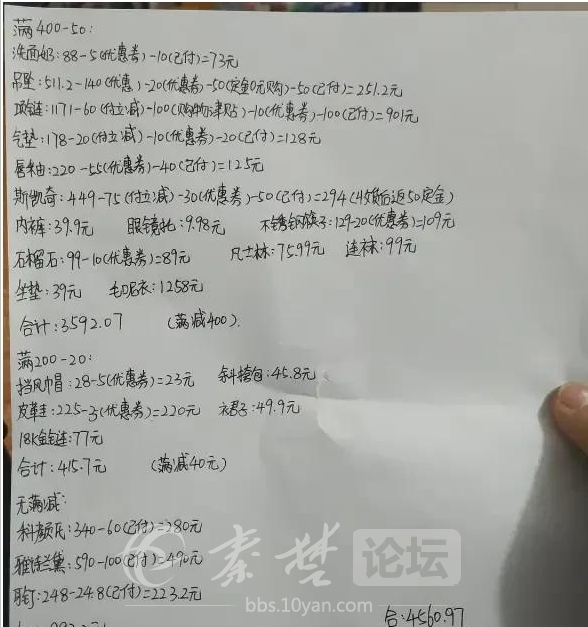 满400-50:
洗面奶:88-5(优惠券)-10(已付)=73元
吊坠:511.2-140(优惠)-20(优惠券)-50(定金0元购)-50(已付)=251.2元
项链:1171-60(付立减)-100(购物津贴)-10(优惠券)-100(已付)=901元
气垫:178-20(付立减)-10(优惠券)-20(已付)=128元
唇釉:220-55(优惠券)-40(已付)=125元
斯凯奇:449-75(付立减)-30(优惠券)-50(已付)=294(收货后返50定金)
内裤:39.9元 眼镜托:9.98元 不锈钢筷子:129-20(优惠券)=109元
石榴石:99-10(优惠券)=89元 凡士林:75.99元 连袜:99元
坐垫:39元 毛呢衣:1258元
合计:3592.07 (满减400).
满200-20:
挡风巾帽:28-5(优惠券)=23元 斜挎包:45.8元
皮鞋:225-5(优惠券)=220元 裙子:49.9元
18K金链:77元
合计:415.7元 (满减40元)
无满减:
科颜氏:340-60(已付)=280元
雅诗兰黛:590-100(已付)=490元
胸:248-24.8(已付)=223.2元
合:4560.97
秦楚论坛
bbs.10yan.com